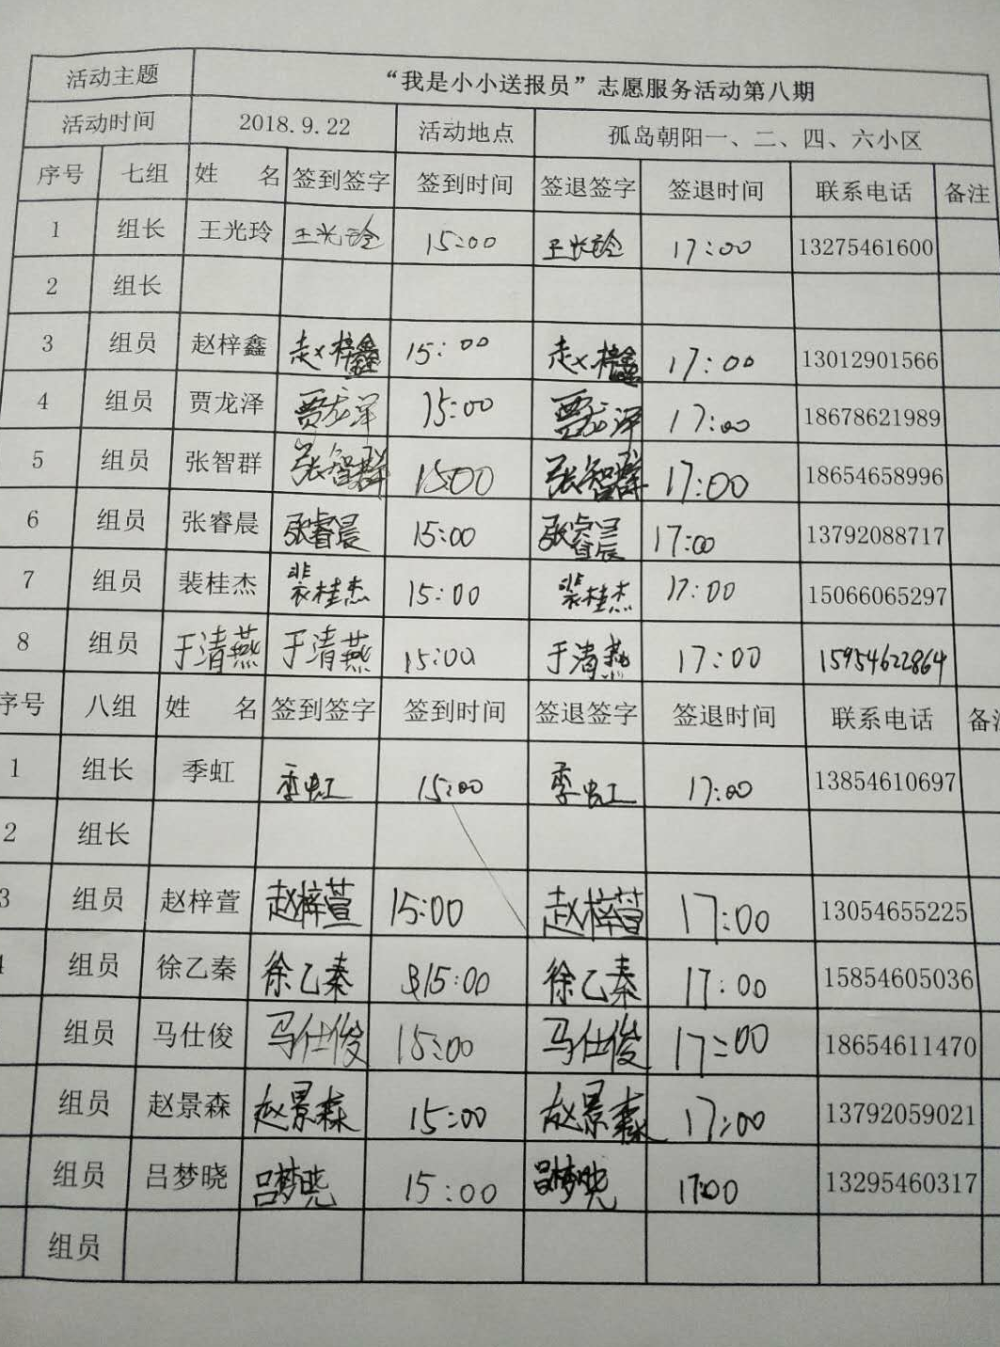 活动主题 “我是小小送报员”志愿服务活动第八期
活动时间 2018.9.22 活动地点 孤岛朝阳一、二、四、六小区
序号 七组 姓 名 签到签字 签到时间 签退签字 签退时间 联系电话 备注
1 组长 王光玲 王光玲 15:00 王光玲 17:00 13275461600
2 组长
3 组员 赵梓鑫 赵梓鑫 15:00 赵梓鑫 17:00 13012901566
4 组员 贾龙泽 贾龙泽 15:00 贾龙泽 17:00 18678621989
5 组员 张智群 张智群 15:00 张智群 17:00 18654658996
6 组员 张睿晨 张睿晨 15:00 张睿晨 17:00 13792088717
7 组员 裴桂杰 裴桂杰 15:00 裴桂杰 17:00 15066065297
8 组员 于清燕 于清燕 15:00 于清燕 17:00 15954622864
序号 八组 姓 名 签到签字 签到时间 签退签字 签退时间 联系电话 备注
1 组长 季虹 季虹 15:00 季虹 17:00 13854610697
2 组长
3 组员 赵梓萱 赵梓萱 15:00 赵梓萱 17:00 13054655225
4 组员 徐乙秦 徐乙秦 15:00 徐乙秦 17:00 15854605036
组员 马仕俊 马仕俊 15:00 马仕俊 17:00 18654611470
组员 赵景森 赵景森 15:00 赵景森 17:00 13792059021
组员 吕梦晓 吕梦晓 15:00 吕梦晓 17:00 13295460317
组员